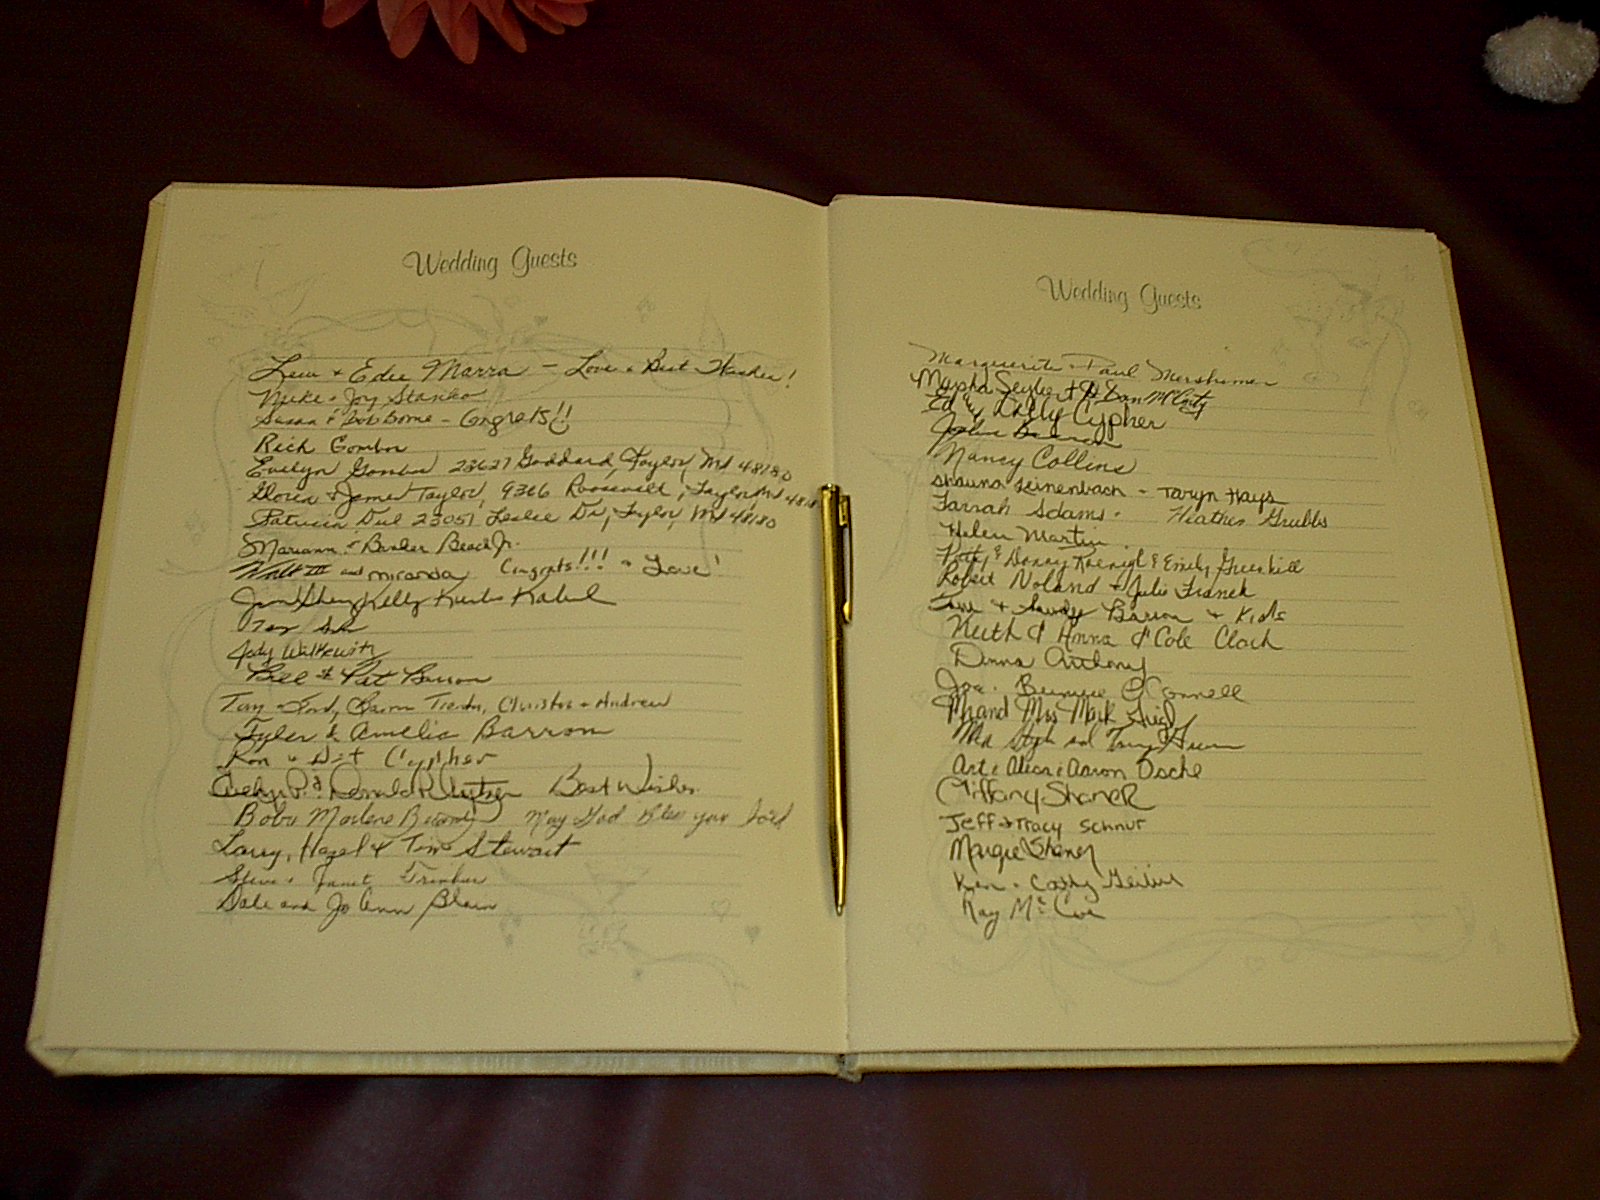 Wedding Guests
Lew + Edie Marra - Love & Best Wishes!
Mike + Joy Stanko
Susan & Bob Borne - Congrats!!
Rich Gombor
Evelyn Gombor 23627 Goddard, Taylor, MI 48180
Gloria & James Taylor, 9366 Roosevelt, Taylor MI 4818
Patricia Dul 23051 Leslie Dr, Taylor, MI 48180
Mariann & Bunker Beach Jr.
Walt III and miranda Congrats!!! - Love!
Jim Sherry Kelly Kurtis
Jody Walkewitz
Bill & Pat Barron
Tom Andrew
Tyler & Amelia Barron
Ron & Dot Cypher
Donald Best Wishes
Bob & Marlene May God Bless you both
Larry, Hazel & Tim Stewart
Steve & Janet
Dale and Jo Ann Blain
Wedding Guests
Marguerite & Paul Mershimer
Marsha Seyler + Dan McCarty
Ed & Dolly Cypher
John Barron
Nancy Collins
Shauna Leinenbach - Taryn Hays
Farrah Adams. Heather Grubbs
Helen Martin
Patty & Danny Koenigl & Emily Greenhill
Robert Noland & Julie Franek
& Barron & Kids
Keith & Anna & Cole Clark
Donna Anthony
Joe & Bernice O'Connell
Mr and Mrs Mark
Mr and
Art & Alice & Aaron Osche
Tiffany Shaner
Jeff & Tracy Schnur
Margie Shaner
Ken & Cathy
Ray McCue